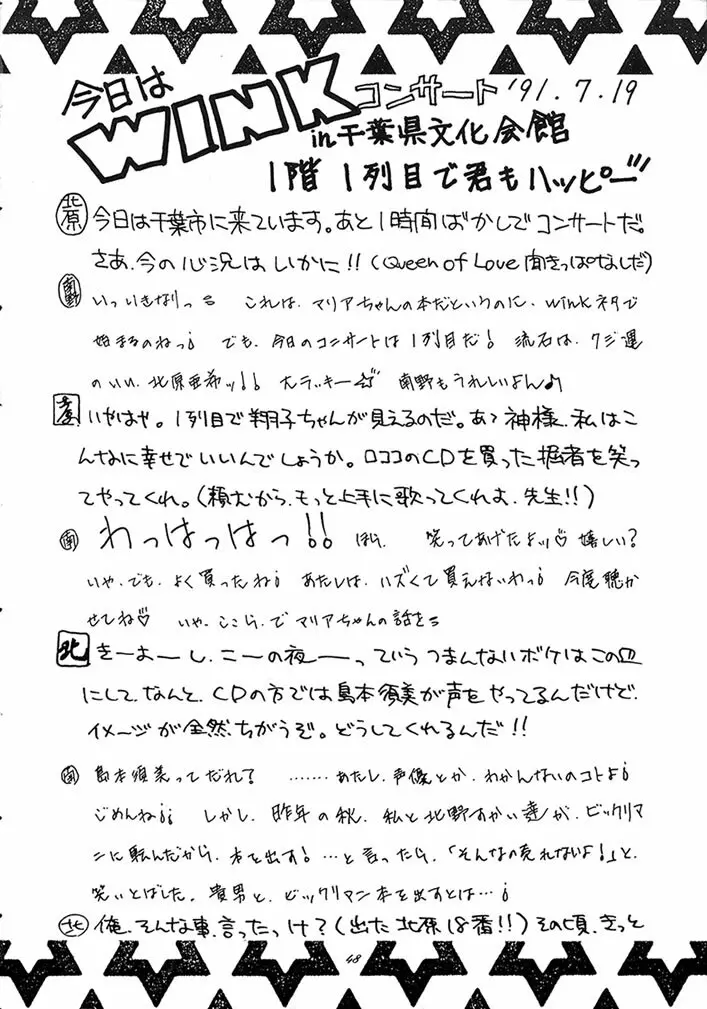 今日は WINK コンサート '91.7.19
in 千葉県文化会館
1階1列目で君もハッピー
北原 今日は千葉市に来ています。あと1時間ばかしでコンサートだ。
さあ、今の心況はいかに!!(Queen of Love 聞きっぱなしだ)
南野 いっいきなりっ これは、マリアちゃんの本だというのに、Winkネタで
始まるのねっ! でも、今日のコンサートは1列目だ! 流石は、クジ運
のいい、北原亜希ッ!! 大ラッキー☆ 南野もうれしいよん♪
いやはや。1列目で翔子ちゃんが見えるのだ。あゝ神様、私はこ
んなに幸せでいいんでしょうか。ロココのCDを買った拙者を笑っ
てやってくれ。(頼むから、もっと上手に歌ってくれよ、先生!!)
南 わっはっはっ!! ほら、 笑ってあげたよッ♡ 嬉しい?
いや、でも、よく買ったね! あたしは、ハズくて買えないわっ! 今度聴か
せてね♡ いや、ここら、で マリアちゃんの話を
北 きーよーし、こーの夜ーっていう つまんないボケはこの皿
にして、なんと、CDの方では島本須美が声をやってるんだけど、
イメージが全然ちがうぞ。どうしてくれるんだ!!
南 島本須美ってだれ? ……あたし、声優とか、わかんないのコトよ!
ごめんね!! しかし、昨年の秋、私と北野すかい達が、ビックリマ
ンに転んだから、本を出す!…と言ったら、「そんなの売れないよ!」と、
笑いとばした、貴男と、ビックリマン本を出すとは…!
北 俺、そんな事、言ったっけ?(出た北原18番!!)その頃、きっと
48